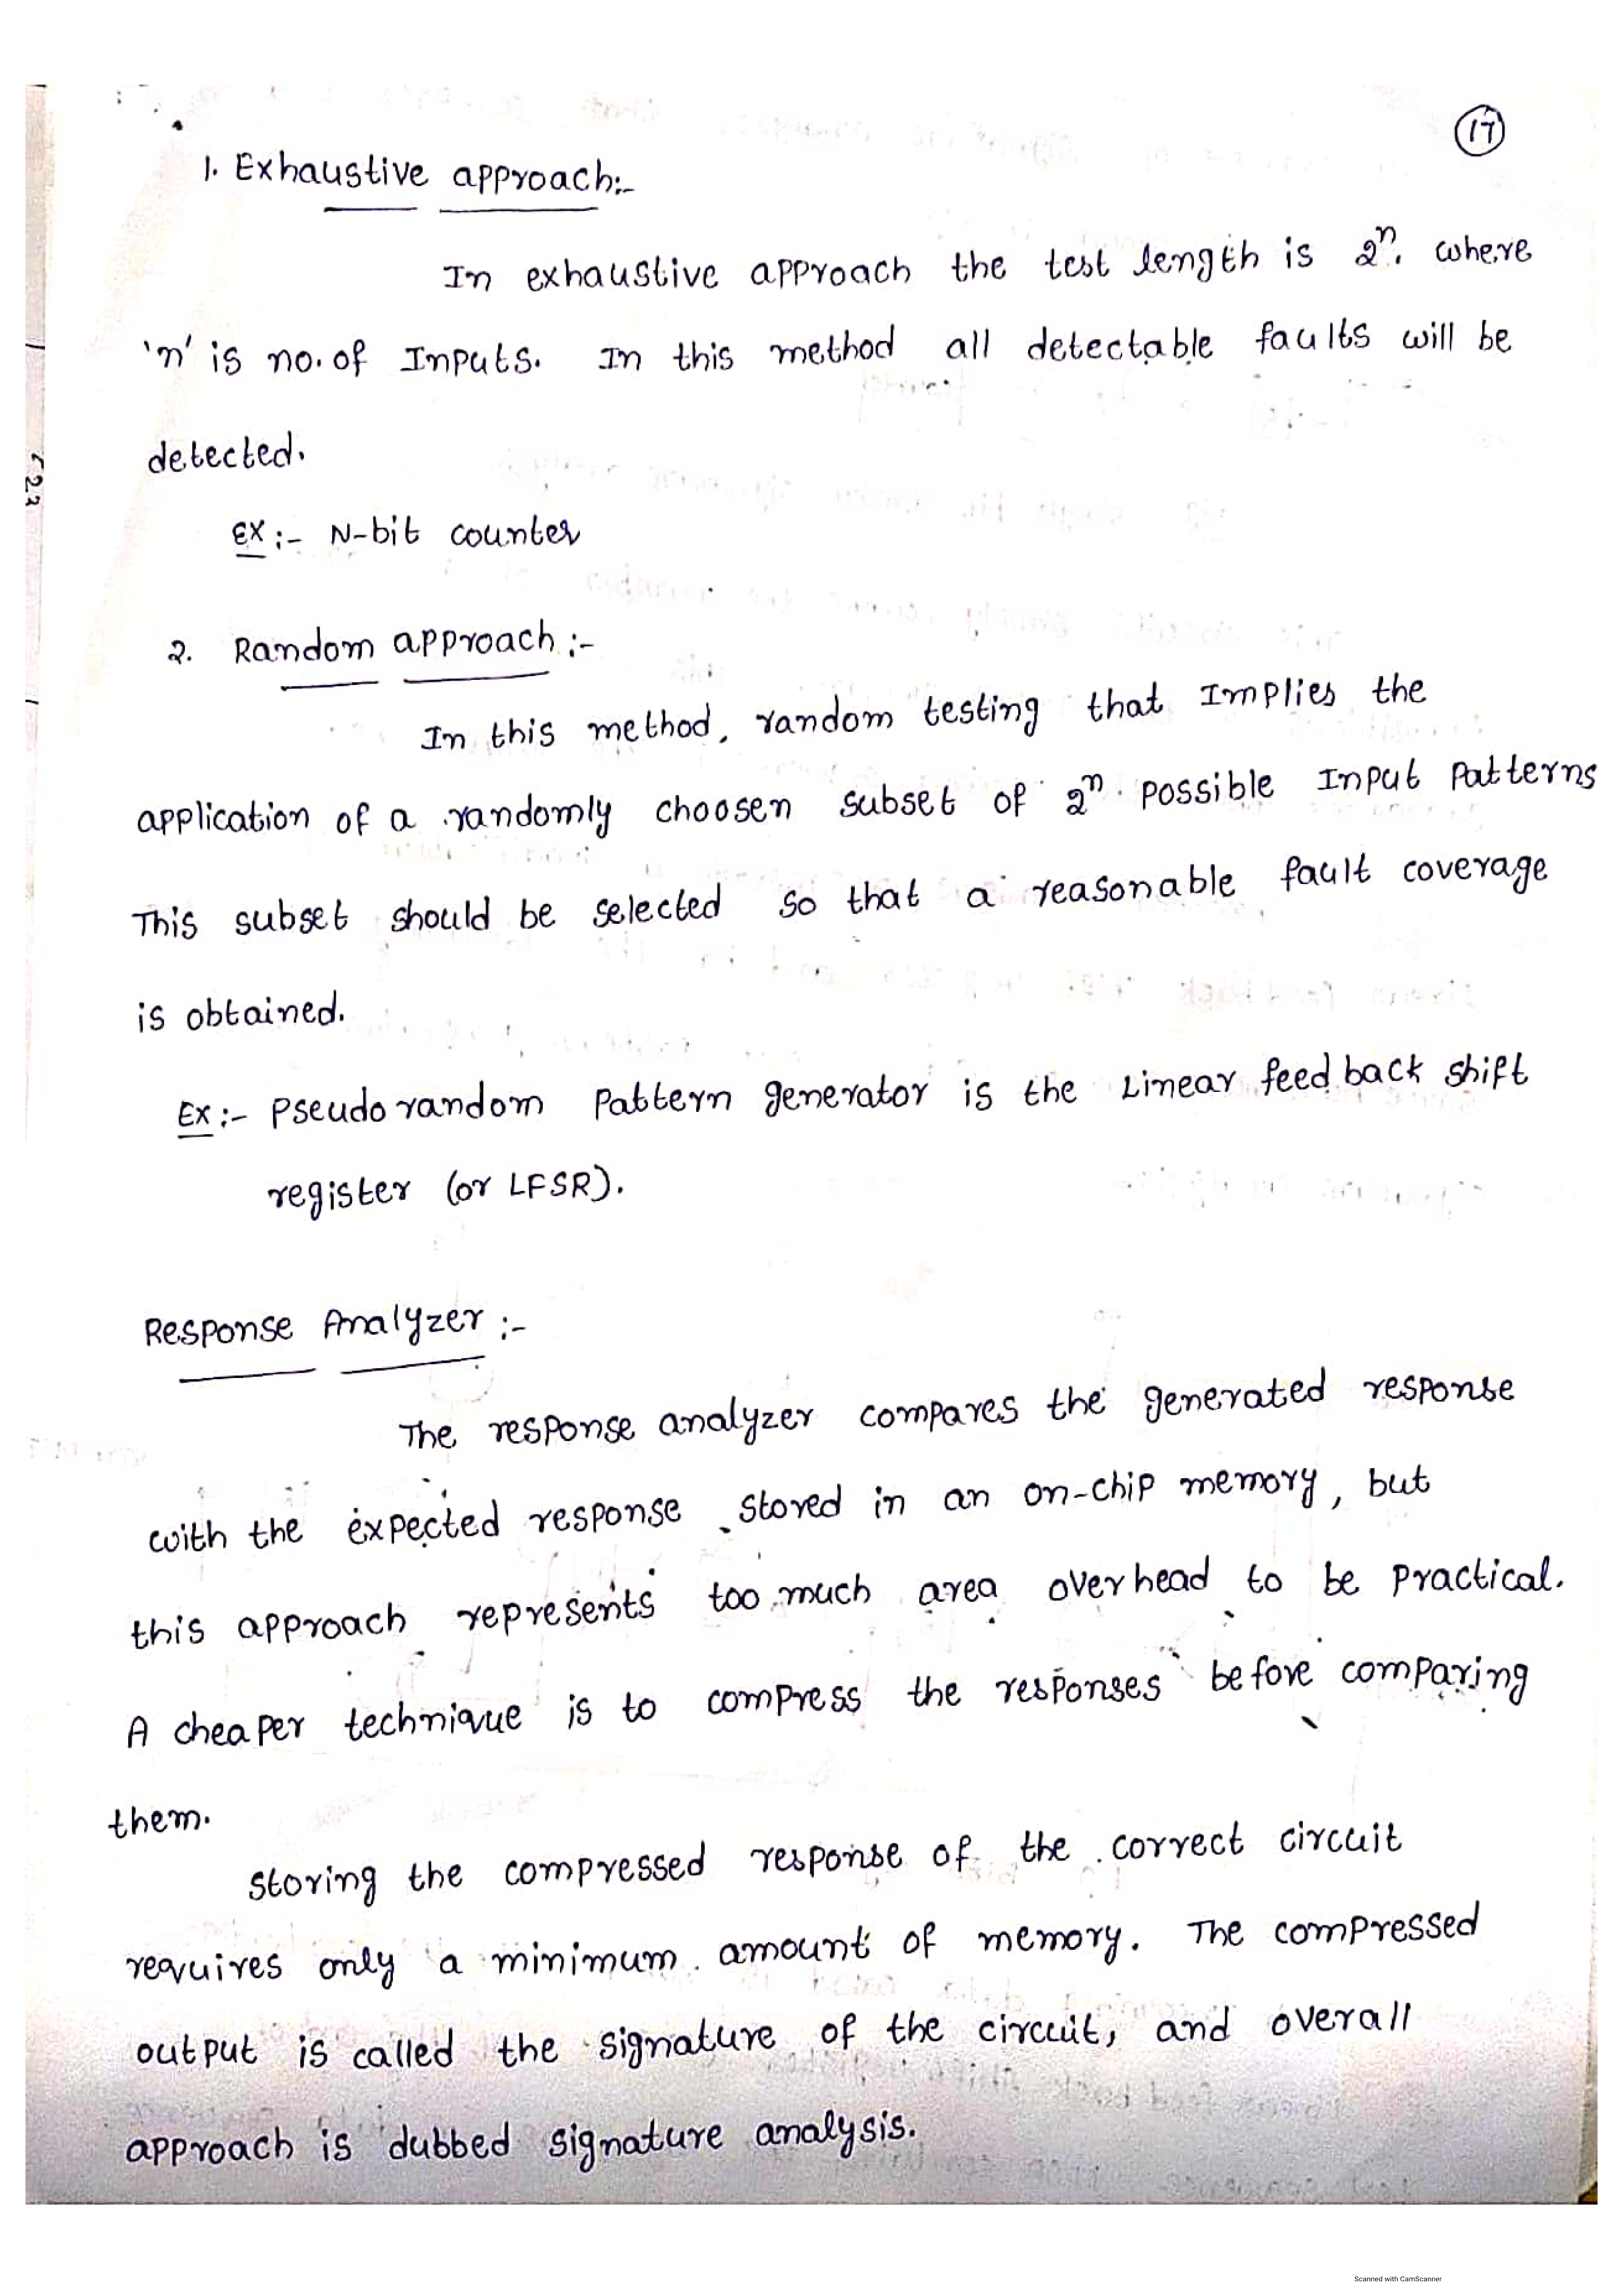 17
1. Exhaustive approach:-
In exhaustive approach the test length is 2ⁿ. where
'n' is no. of Inputs. In this method all detectable faults will be
detected.
Ex:- N-bit counter
2. Random approach:-
In this method, random testing that Implies the
application of a randomly choosen subset of 2ⁿ possible Input Patterns
This subset should be selected so that a reasonable fault coverage
is obtained.
Ex:- Pseudo random Pattern generator is the Linear feed back shift
register (or LFSR).
Response Analyzer:-
The response analyzer compares the generated response
with the expected response stored in an on-chip memory, but
this approach represents too much area overhead to be Practical.
A cheaper technique is to compress the responses before comparing
them.
storing the compressed response of the correct circuit
requires only a minimum amount of memory. The compressed
output is called the signature of the circuit, and overall
approach is dubbed signature analysis.
Scanned with CamScanner